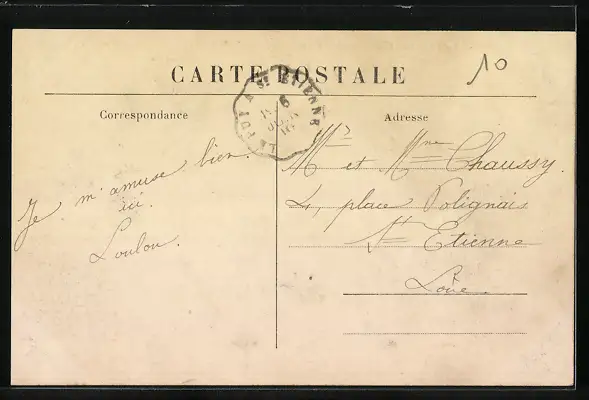 10
CARTE POSTALE
LA PUY A ST ETIENNE
6
Correspondance
Adresse
Je m'amuse bien.
ici.
Loulou.
Mr et Mme Chaussy.
4, place Polignais
St Etienne
Loire.